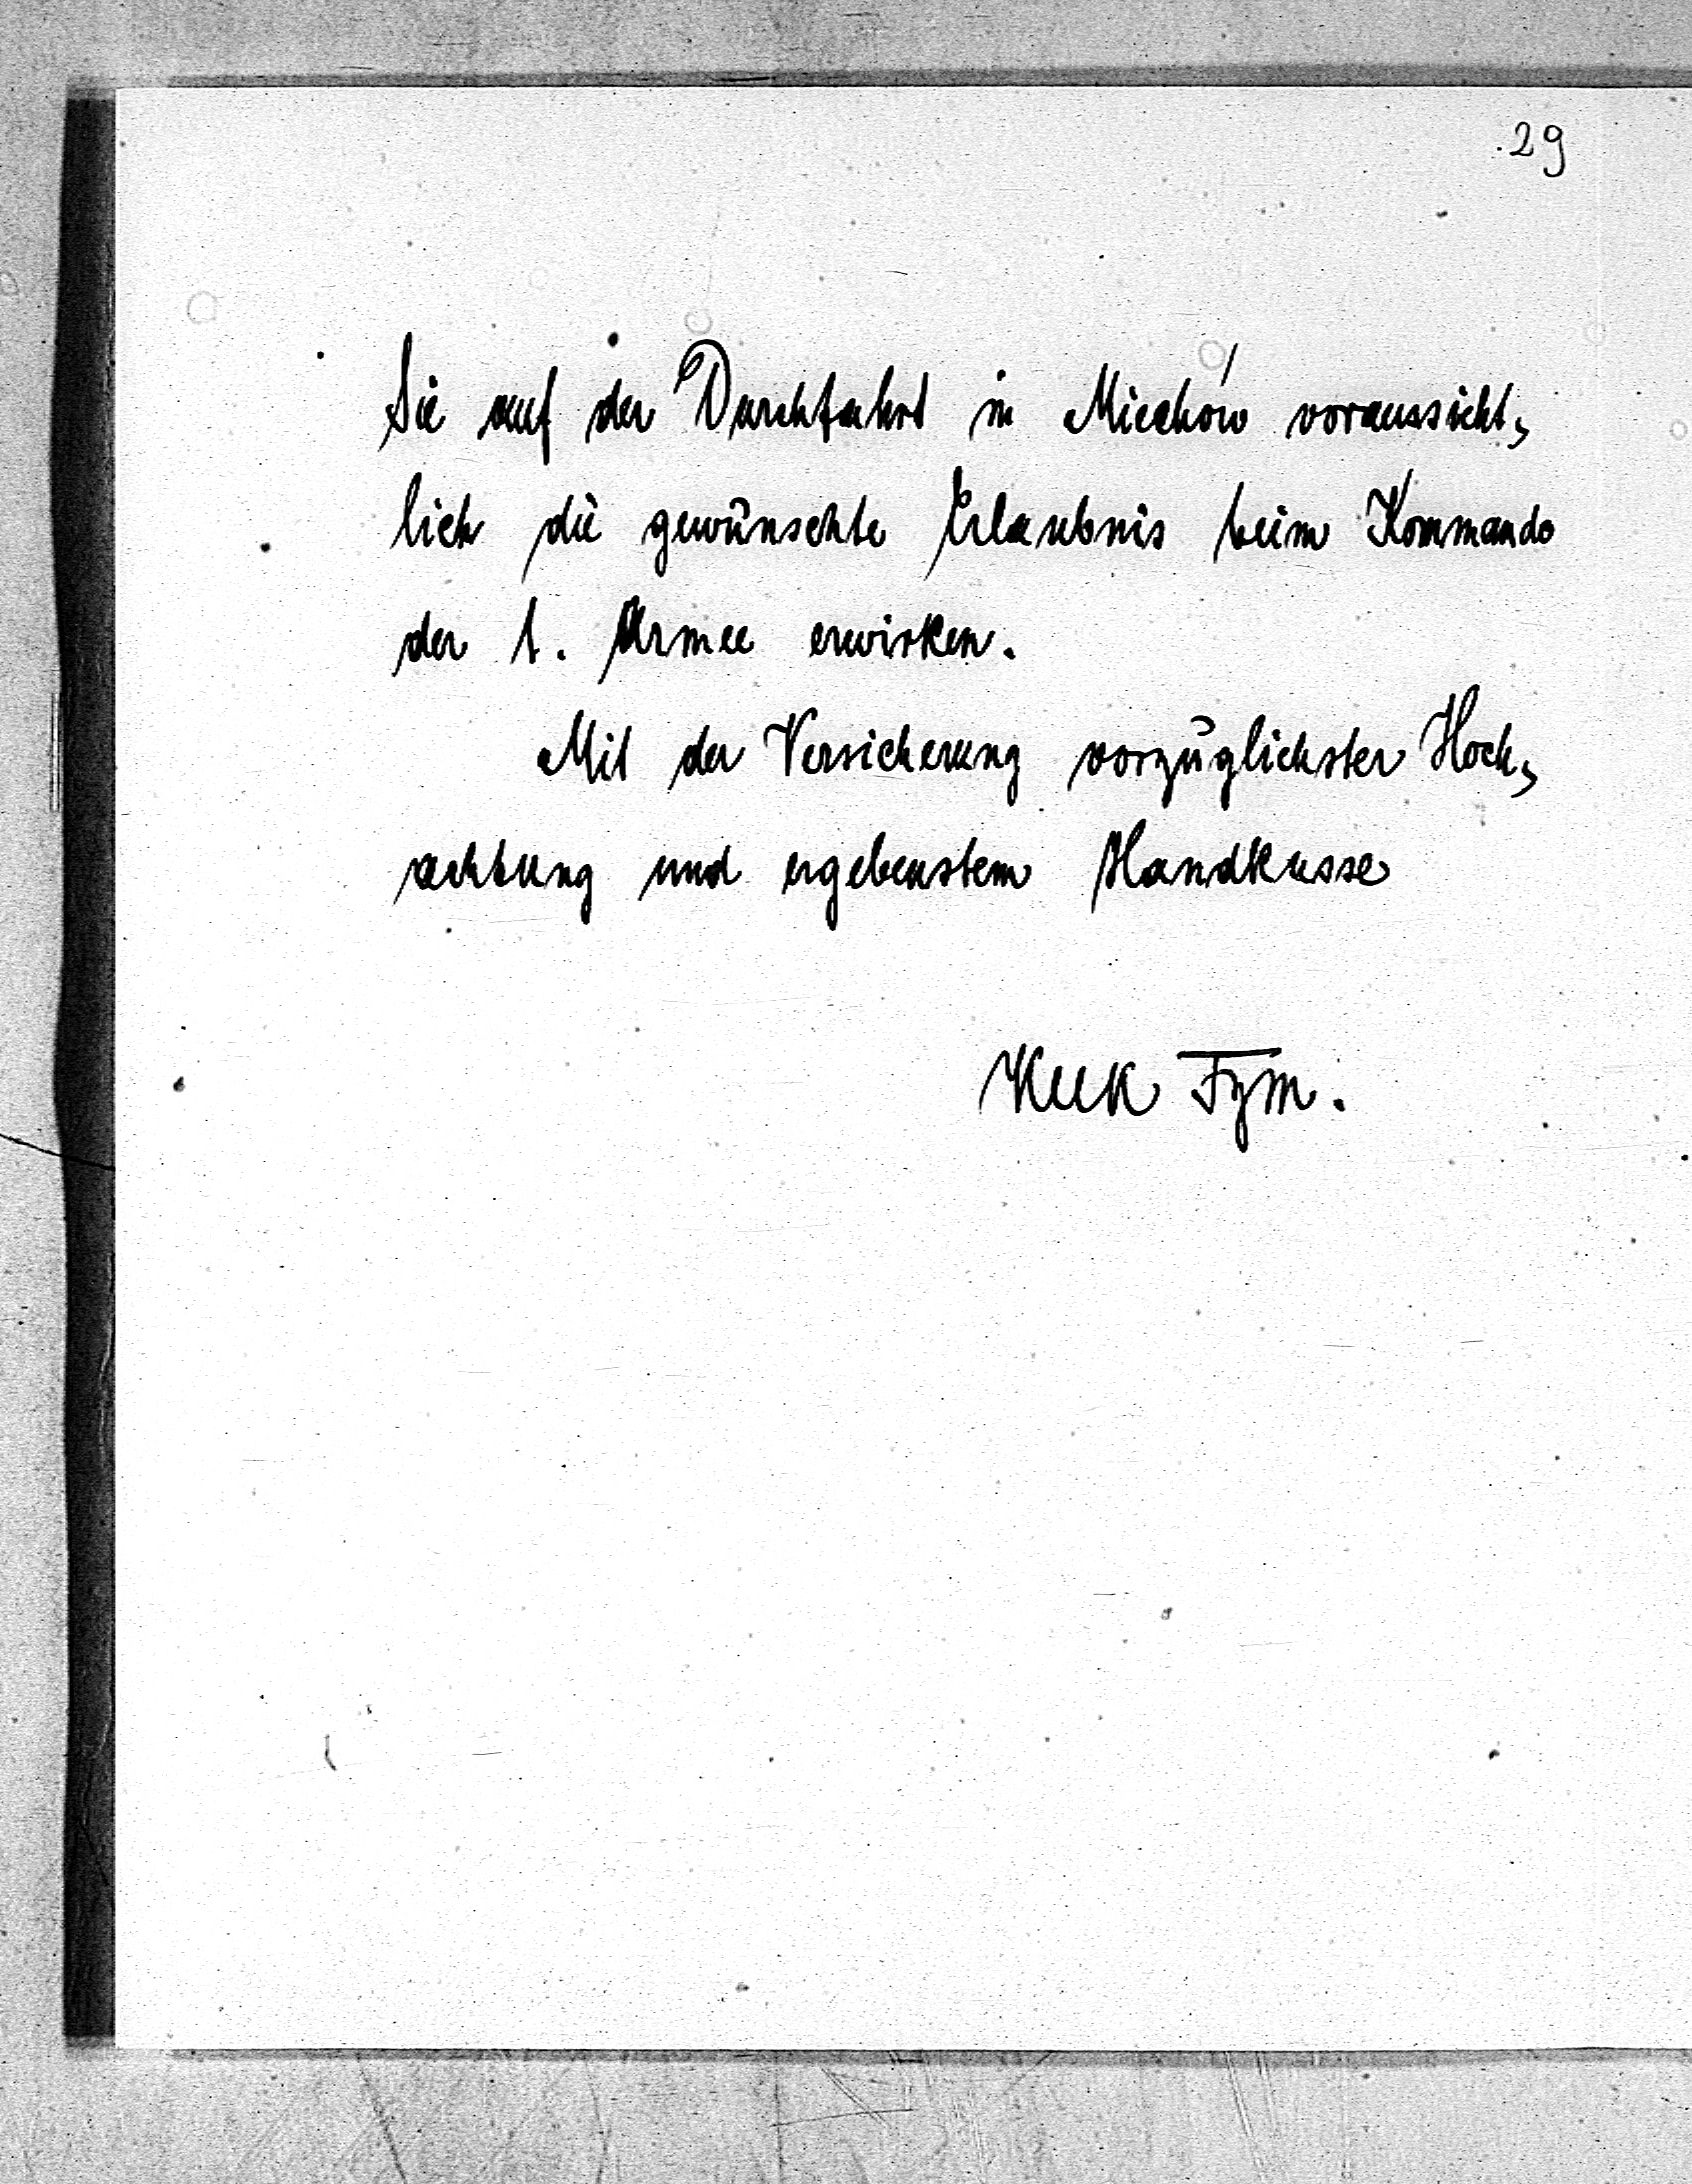 29
Sie auf der Durchfahrt in Miechów voraussicht,
lich die gewünschte Erlaubnis beim Kommando
der 1. Armee erwirken.
Mit der Versicherung vorzüglichster Hoch,
achtung und ergebenstem Handkusse
Kuk Fzm.